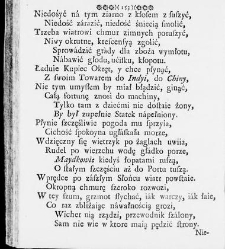 Niedosyć ná tym ziarno z kłosem z suszyć,
Niedość zárazić, niedość śniecią smolić,
Trzeba wiatrowi chmur zimnych poruszyć,
Niwy okrutne, krescensyą zgolić,
Sprowádzić grády dla zboża wymłotu,
Nábawić głodu, ucisku, kłopotu.
Łáduie Kupiec Okręt, y chce płynąć,
Z swoim Towarem do Indyi, do Chiny,
Nie tym umysłem by miał błądzić, ginąć,
Całą fortunę znosi do máchiny,
Tylko tam z dziećmi nie dośláie żony,
By był zupełnie Statek nápełniony.
Płynie szczęśliwie pogoda mu sprzyia,
Cichość spokoyna ugłáskała morze,
Wdzięczny się wietrzyk po żaglach uwiia,
Rudel po wierzchu wodę gładko porze,
Maydkowie kiedyś fopatami ruszą,
O stałym szczęściu áż do Portu tuszą.
Wprędce po zászłym Słońcu wiatr powstaie.
Okropną chmurę szeroko rozwozi,
W tey szum, grzmot słychać, iák warczy, iák łaie,
Co raz zbliżáiąc náwáłnością grozi,
Wicher nią rządzi, przewodnik szálony,
Sam nie wie w ktore máią pędzić strony.
Nie-